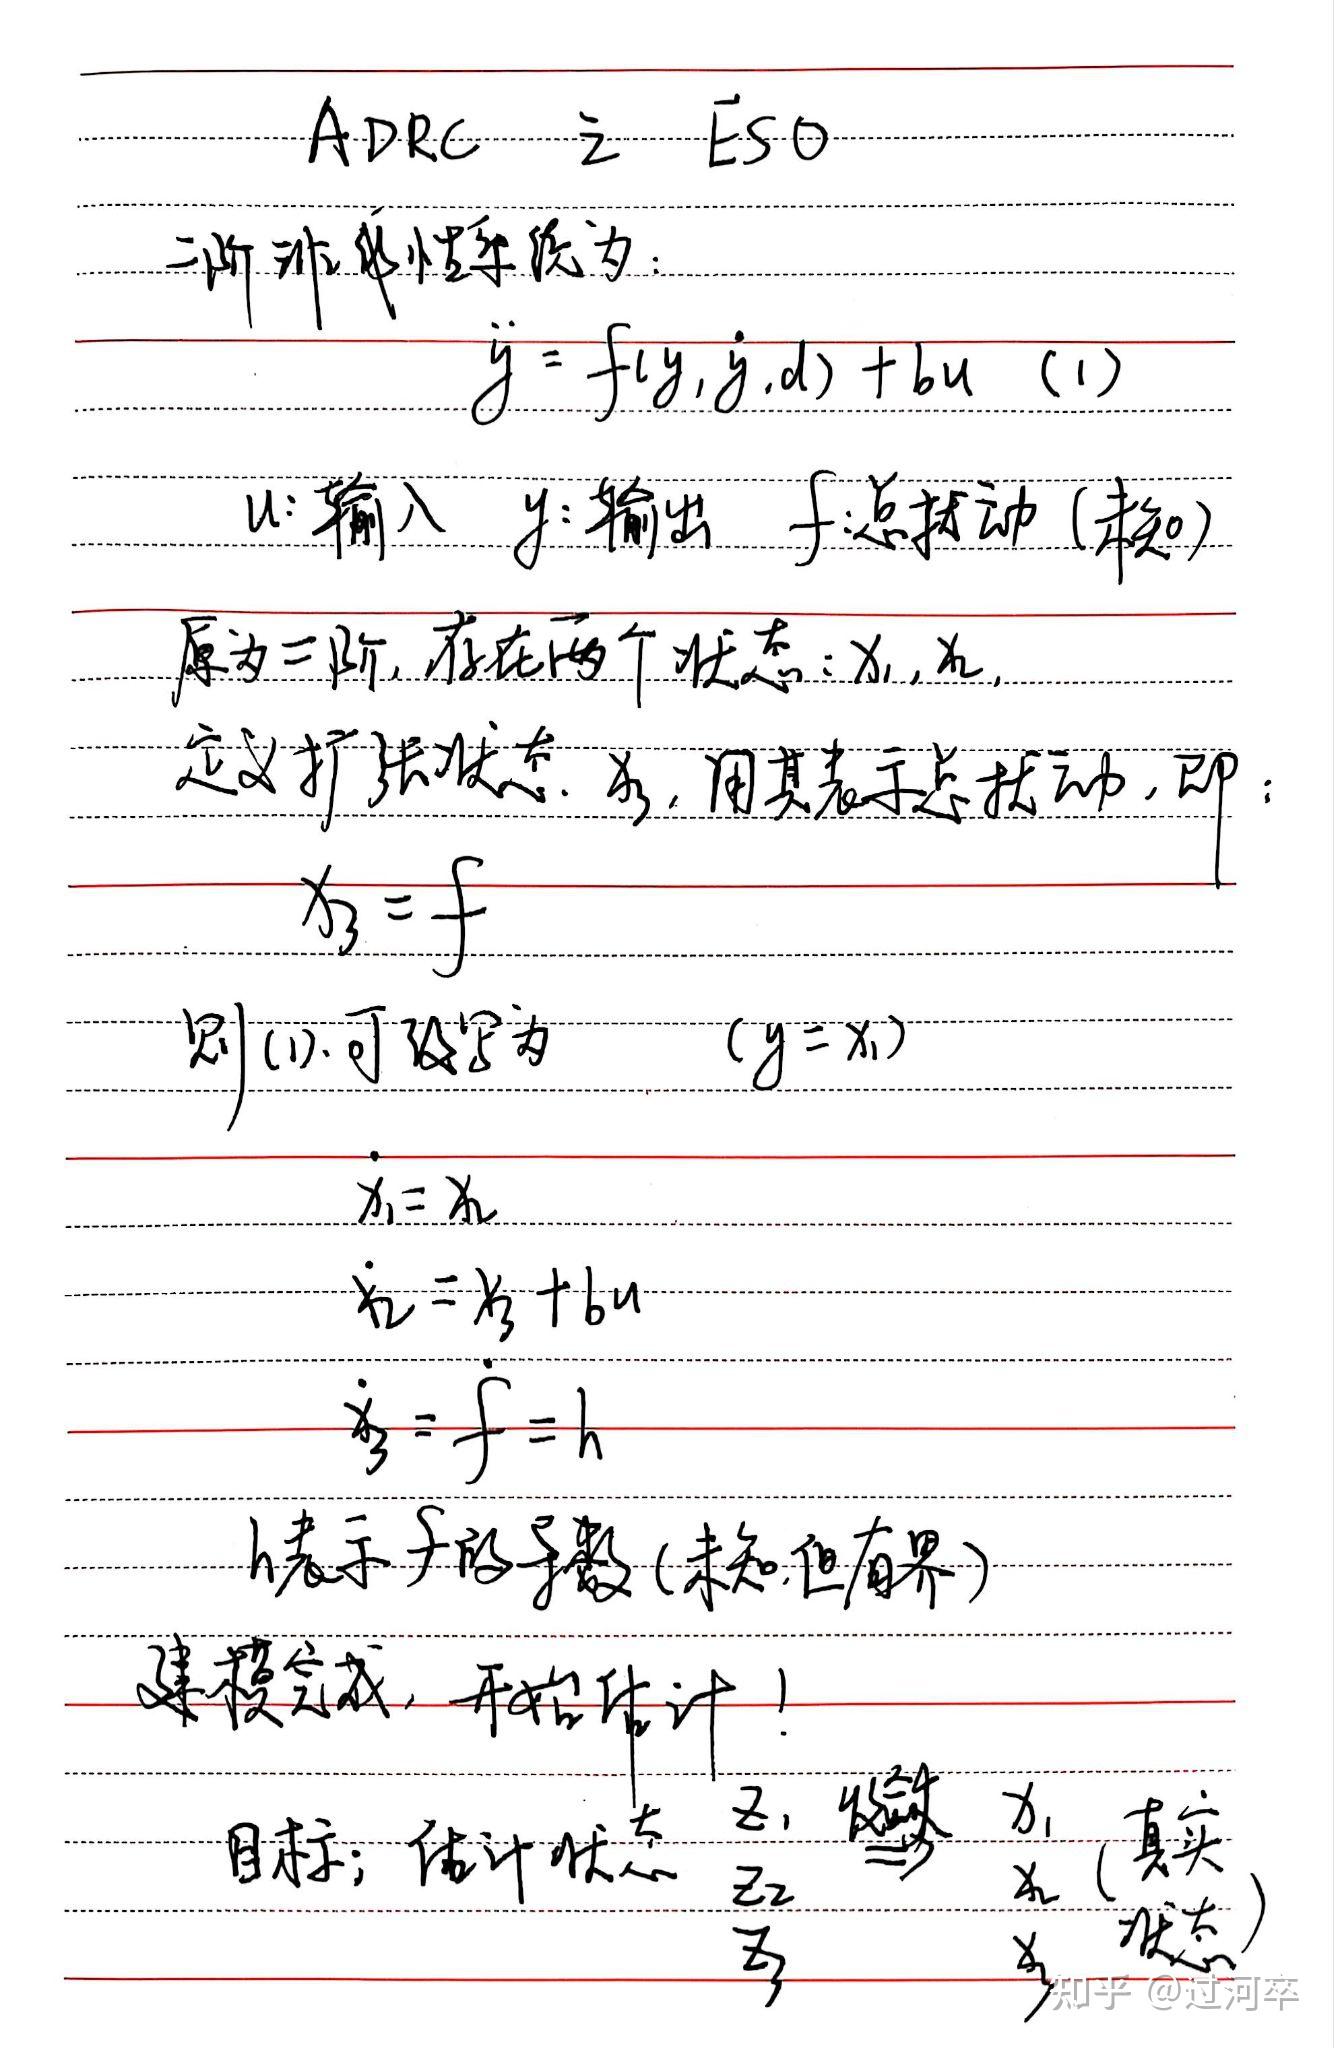 ADRC 之 ESO
二阶非线性系统为:
ÿ = f(y, ẏ, d) + bu (1)
u: 输入 y: 输出 f: 总扰动 (未知)
原为二阶, 存在两个状态: x₁, x₂,
定义扩张状态. x₃, 用其表示总扰动, 即:
x₃ = f
则(1). 可改写为 (y = x₁)
ẋ₁ = x₂
ẋ₂ = x₃ + bu
ẋ₃ = ḟ = h
h表示 f 的导数 (未知, 但有界)
建模完成, 开始估计!
目标; 估计状态 z₁ 收敛 x₁ (真实
z₂ ⇒ x₂ 状态)
z₃ x₃
知乎 @过河卒